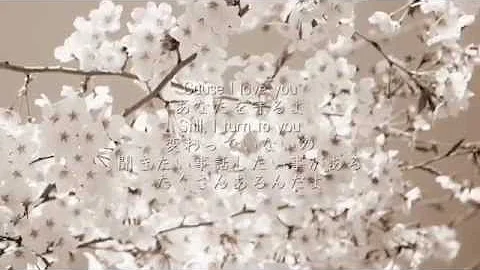 'Cause I love you
あなたを守るよ
Still, I turn to you
変わっていないの
聞きたい事話したい事がある
たくさんあるんだよ